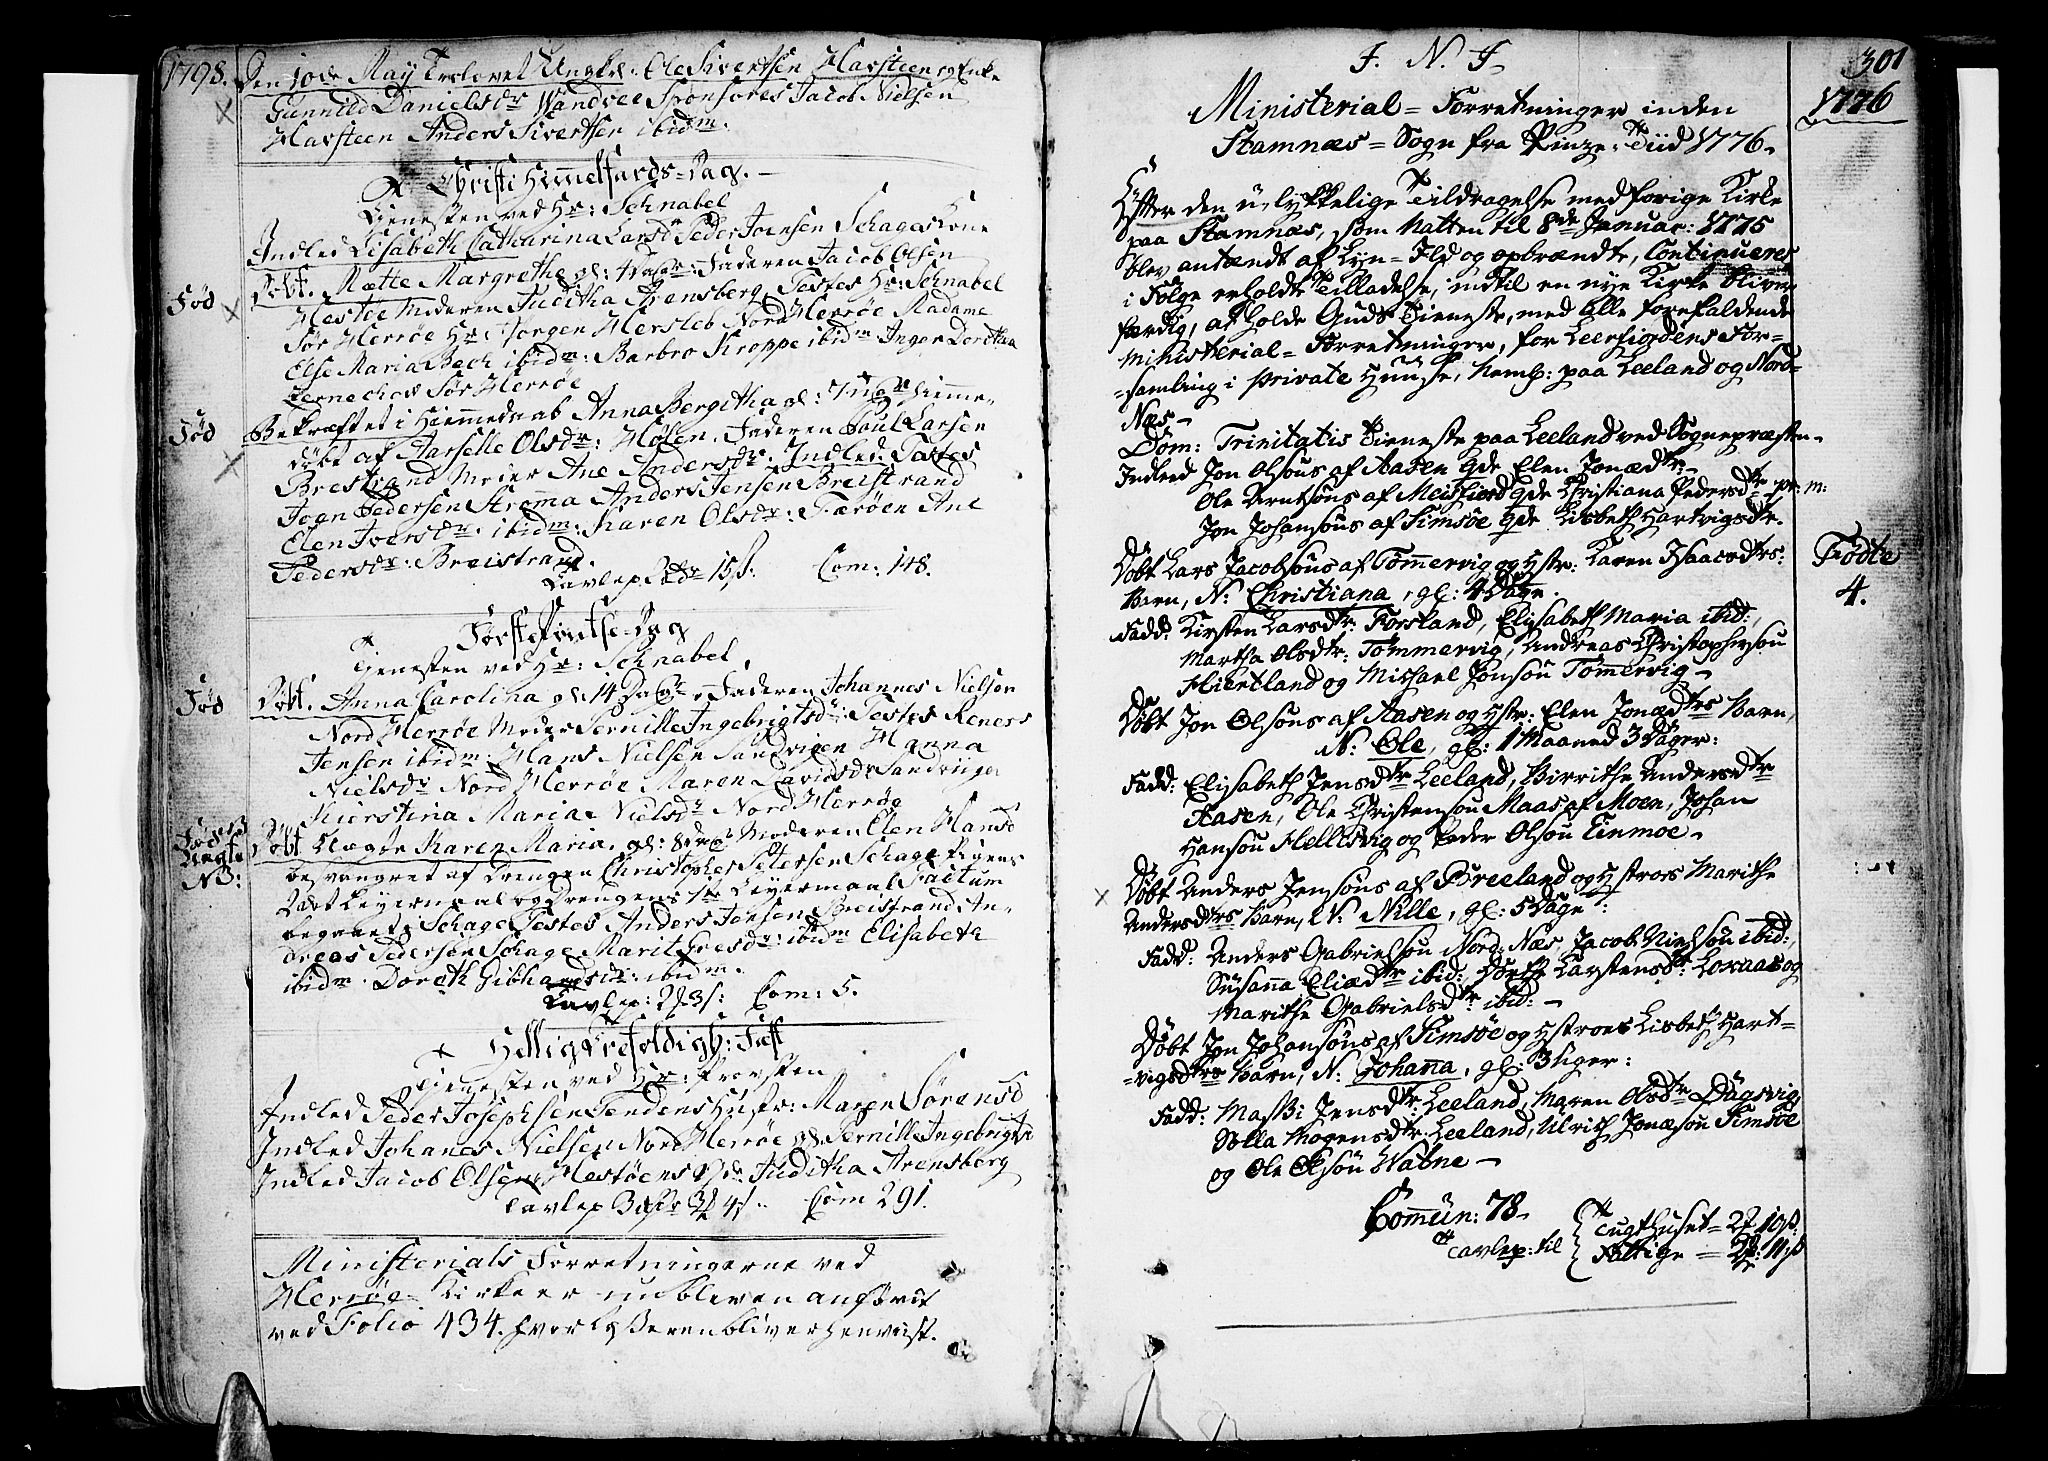 1798.
Den 10de May Trolovet Ungkl: Ole Sivertsen Havsteen og Enke
Gunnild Danielsdr Vandvee Sponsores Jacob Nielsen
Havsteen Anders Sivertsen ibidm.
Christi Himmelfards-Dag.
Tjenesten ved Hr: Schnabel
Indled Lisabeth Catharina Larsd Peder Joensen Schages Kone
Fød
Døbt. Mætte Margrethe gl: Faderen Jacob Olsen
Hestøe Moderen Juditha Arensberg Testes Hr: Schnabel
Sør Herrøe Hr: Jørgen Hersleb Nord Herrøe Madame
Else Maria Bech ibidm: Barbro Kroppe ibidm Inger Dorethea
Zernechov Sør Herrøe
Fød
Bekræftet i Hiemmedaab Anna Bergitha gl: hiemme-
døbt af Aarselle Olsdr: Holen. Faderen Poul Larsen
Breistrand Moder Ane Andersdr. Indled. Testes
Joen Pedersen Strømma Anders Jensen Breistrand
Elen Iversdr. ibidm: Karen Olsdr: Færøen Ane
Pedersdr: Breistrand.
Tavlep. 15 s: Com: 148.
Første Pintse-Dag
Tjenesten ved Hr: Schnabel.
Fød
Døbt. Anna Carolina gl: 14 Dage Faderen Johannes Nielsen
Nord Herrøe Moder Pernille Ingebrigtsdr: Testes Reness
Jensen ibidm: Hans Nielsen Sandvigen Hanna
Nielsdr Nord Herrøe Maren Davidsdr Sandviigen
Kierstina Maria Nielsdr Nord Herrøe
Fød
Uægte
NB:
Døbt Uægte Karen Maria. gl: 8 Moderen Elen Hansd
besvangret af Drengen Christopher Petersen Schage Pigens
Leyermaal og Drengens 1te Leyermaal Factum
begaaet i Schage Testes Anders Jensen Breistrand An-
dreas Pedersen Schage Marit Gresdr: ibidm Elisabeth
ibidm. Doreth Gibhardsdr: ibidm.
Tavlep: 2 3 s: Com: 5.
Hellig Trefoldigh: Fest
Tjenesten ved Hr: Provsten
Indled Peder Josephsen Tendens Hustr: Maren Sørensd
Indled Johanes Nielsen Nord Herrøe gl. Pernille Ingebrigtsd
Indled Jacob Olsen Hestøens Qde Juditha Arensberg
Tavlep 4 s: Com 291.
Ministerials Forretningerne ved
Herrøe Kirke er nu bleven anført
ved Folio 434. hvor Læseren bliver henvist.
301
1776
I. N. J.
Ministerial = Forretninger inden
Stamnæs = Sogn fra Pinze: Tiid 1776.
Efter den ulykkelige Tildragelse med forige Kirke
paa Stamnæs, som Natten til 8de Januar: 1775
blev antændt af Lyn = Ild og opbrændte, Continueres
i Følge erholdte Tilladelse, indtil en nye Kirke bliver
færdig, at holde Guds Tieneste, med alle forefaldende
Ministerial = Forretninger, for Leerfiordens For=
=samling i private Huuse, Neml: paa Leeland og Nord=
Næs
Dom: Trinitatis Tieneste paa Leeland ved Sognepræsten
Indleed Jon Olsøns af Aasen Qde Elen Jonædtr:
Ole Arntsøns af Meisfiord Qde Christiana Pedersdtr pr: m:
Jon Johansøns af Simsøe Qde Lisbeth Hartvigsdtr.
Fødte
4.
Døbt Lars Jacobsøns af Tømmervig og Hstr: Karen Isaacsdtrs:
Barn, N: Christiana, gl: 4 Dage.
Fadd: Kirsten Larsdtr: Forsland, Elisabeth Maria ibid:,
Martha Olsdtr: Tømmervig, Andreas Christophersøn
Hiertland og Michael Jonsøn Tømervig
Døbt Jon Olsøns af Aasen og Hstr: Elen Jonædtrs Barn,
N: Ole, gl: 1 Maaned 3 Dager:
Fadd: Elisabeth Jensdtr Leeland, Birrithe Andersdtr
Aasen, Ole Christensøn Maas af Moen, Johan
Hansøn Hellesvig og Peder Olsøn Einmoe
Døbt Anders Jensøns af Breeland og Hstroes Marithe
Andersdtrs Barn, N: Nille, gl: 5 Dage:
Fadd: Anders Gabrielsøn Nord: Næs, Jacob Nielsøn ibid:,
Susanna Eliædtr ibid: Dorthe Carstensdtr: Lovaas og
Marithe Gabrielsdtr ibid:
Døbt Jon Johansøns af Simsøe og Hstroes Lisbeth Hart=
=vigsdtrs Barn, N: Johanna, gl: 3 Uger:
Fadd: Massi Jensdtr: Leeland, Maren Olsdtr Dagsvig
Sølla Mogensdtr: Leeland, Ulrich Jonæsøn Simsøe
og Ole Olsøn Watne
Commun: 78
Tavlep: til Tugthuset = 10 s:
Fattige = 11 s